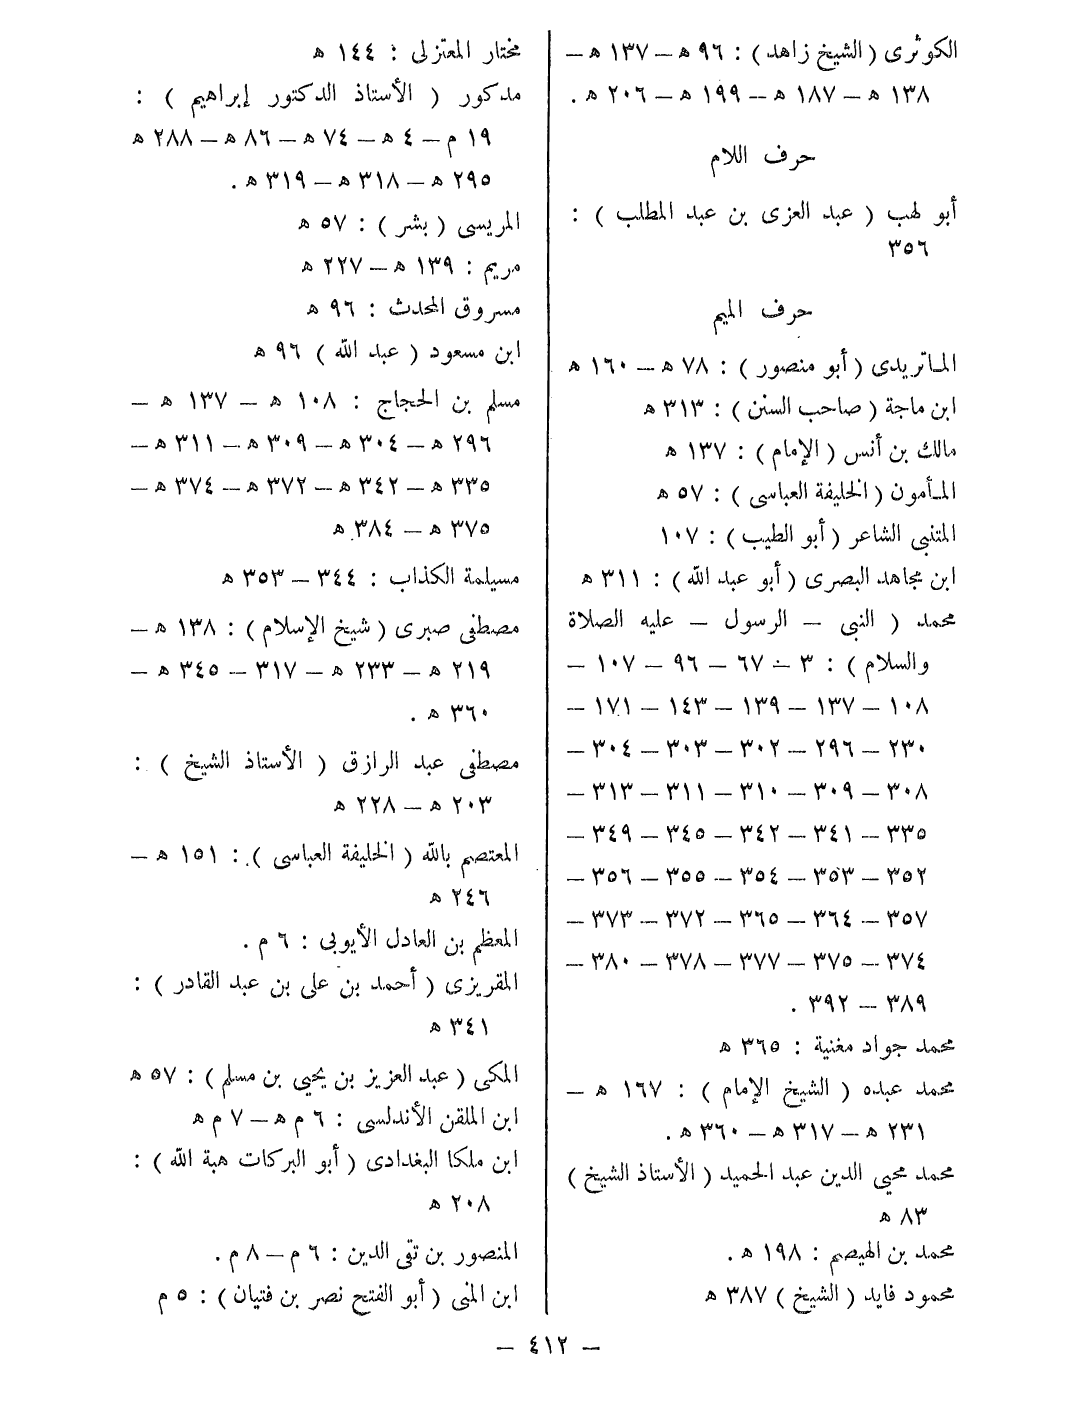 الكوثرى ( الشيخ زاهد ) : ٩٦ ه – ١٣٧ ه –
١٣٨ ه – ١٨٧ ه – ١٩٩ ه – ٢٠٦ ه .
حرف اللام
أبو لهب ( عبد العزى بن عبد المطلب ) :
٣٥٦
حرف الميم
الماتريدى ( أبو منصور ) : ٧٨ ه – ١٦٠ ه
ابن ماجة ( صاحب السنن ) : ٣١٣ ه
مالك بن أنس ( الإمام ) : ١٣٧ ه
المأمون ( الخليفة العباسى ) : ٥٧ ه
المتنبى الشاعر ( أبو الطيب ) : ١٠٧
ابن مجاهد البصرى ( أبو عبد الله ) : ٣١١ ه
محمد ( النبى – الرسول – عليه الصلاة
والسلام ) : ٣ – ٦٧ – ٩٦ – ١٠٧ –
١٠٨ – ١٣٧ – ١٣٩ – ١٤٣ – ١٧١ –
٢٣٠ – ٢٩٦ – ٣٠٢ – ٣٠٣ – ٣٠٤ –
٣٠٨ – ٣٠٩ – ٣١٠ – ٣١١ – ٣١٣ –
٣٣٥ – ٣٤١ – ٣٤٢ – ٣٤٥ – ٣٤٩ –
٣٥٢ – ٣٥٣ – ٣٥٤ – ٣٥٥ – ٣٥٦ –
٣٥٧ – ٣٦٤ – ٣٦٥ – ٣٧٢ – ٣٧٣ –
٣٧٤ – ٣٧٥ – ٣٧٧ – ٣٧٨ – ٣٨٠ –
٣٨٩ – ٣٩٢ .
محمد جواد مغنية : ٣٦٥ ه
محمد عبده ( الشيخ الإمام ) : ١٦٧ ه –
٢٣١ ه – ٣١٧ ه – ٣٦٠ ه .
محمد محيى الدين عبد الحميد ( الأستاذ الشيخ )
٨٣ ه
محمد بن الهيصم : ١٩٨ ه .
محمود فايد ( الشيخ ) ٣٨٧ ه
مختار المعتزلى : ١٤٤ ه
مدكور ( الأستاذ الدكتور إبراهيم ) :
١٩ م – ٤ ه – ٧٤ ه – ٨٦ ه – ٢٨٨ ه
٢٩٥ ه – ٣١٨ ه – ٣١٩ ه .
المريسى ( بشر ) : ٥٧ ه
مريم : ١٣٩ ه – ٢٢٧ ه
مسروق المحدث : ٩٦ ه
ابن مسعود ( عبد الله ) ٩٦ ه
مسلم بن الحجاج : ١٠٨ ه – ١٣٧ ه –
٢٩٦ ه – ٣٠٤ ه – ٣٠٩ ه – ٣١١ ه –
٣٣٥ ه – ٣٤٢ ه – ٣٧٢ ه – ٣٧٤ ه –
٣٧٥ ه – ٣٨٤ ه
مسيلمة الكذاب : ٣٤٤ – ٣٥٣ ه
مصطفى صبرى ( شيخ الإسلام ) : ١٣٨ ه –
٢١٩ ه – ٢٣٣ ه – ٣١٧ – ٣٤٥ ه –
٣٦٠ ه .
مصطفى عبد الرازق ( الأستاذ الشيخ ) :
٢٠٣ ه – ٢٢٨ ه
المعتصم بالله ( الخليفة العباسى ) : ١٥١ ه –
٢٤٦ ه
المعظم بن العادل الأيوبى : ٦ م .
المقريزى ( أحمد بن على بن عبد القادر ) :
٣٤١ ه
المكى ( عبد العزيز بن يحيى بن مسلم ) : ٥٧ ه
ابن الملقن الأندلسى : ٦ م ه – ٧ م ه
ابن ملكا البغدادى ( أبو البركات هبة الله ) :
٢٠٨ ه
المنصور بن تقى الدين : ٦ م – ٨ م .
ابن المنى ( أبو الفتح نصر بن فتيان ) : ٥ م
– ٤١٢ –